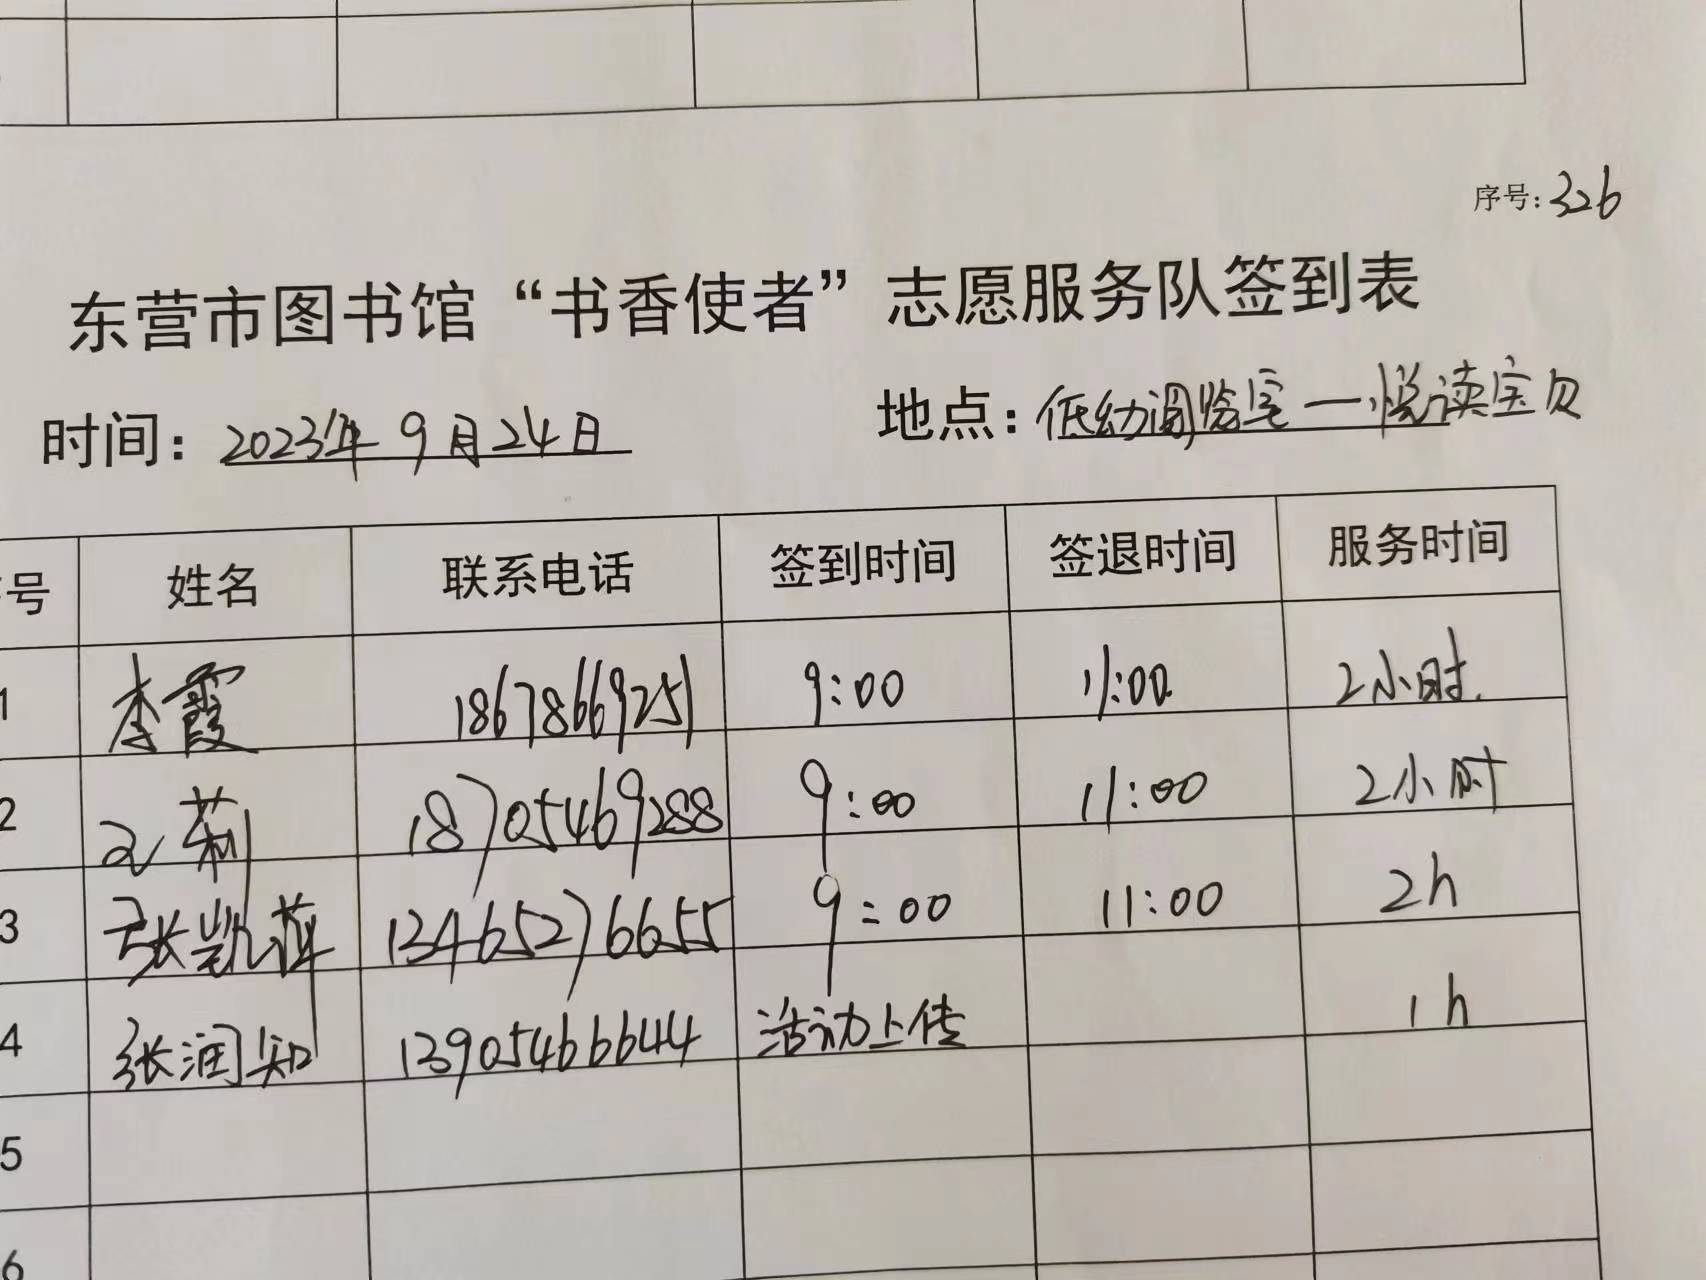 序号:326
东营市图书馆“书香使者”志愿服务队签到表
时间：2023年9月24日 地点：低幼阅览室—悦读宝贝
号 姓名 联系电话 签到时间 签退时间 服务时间
1 李霞 18678669251 9:00 11:00 2小时
2 莉 18705469288 9:00 11:00 2小时
3 张凯萍 13465276655 9:00 11:00 2h
4 张润知 13905466644 活动上传 1h
5
6